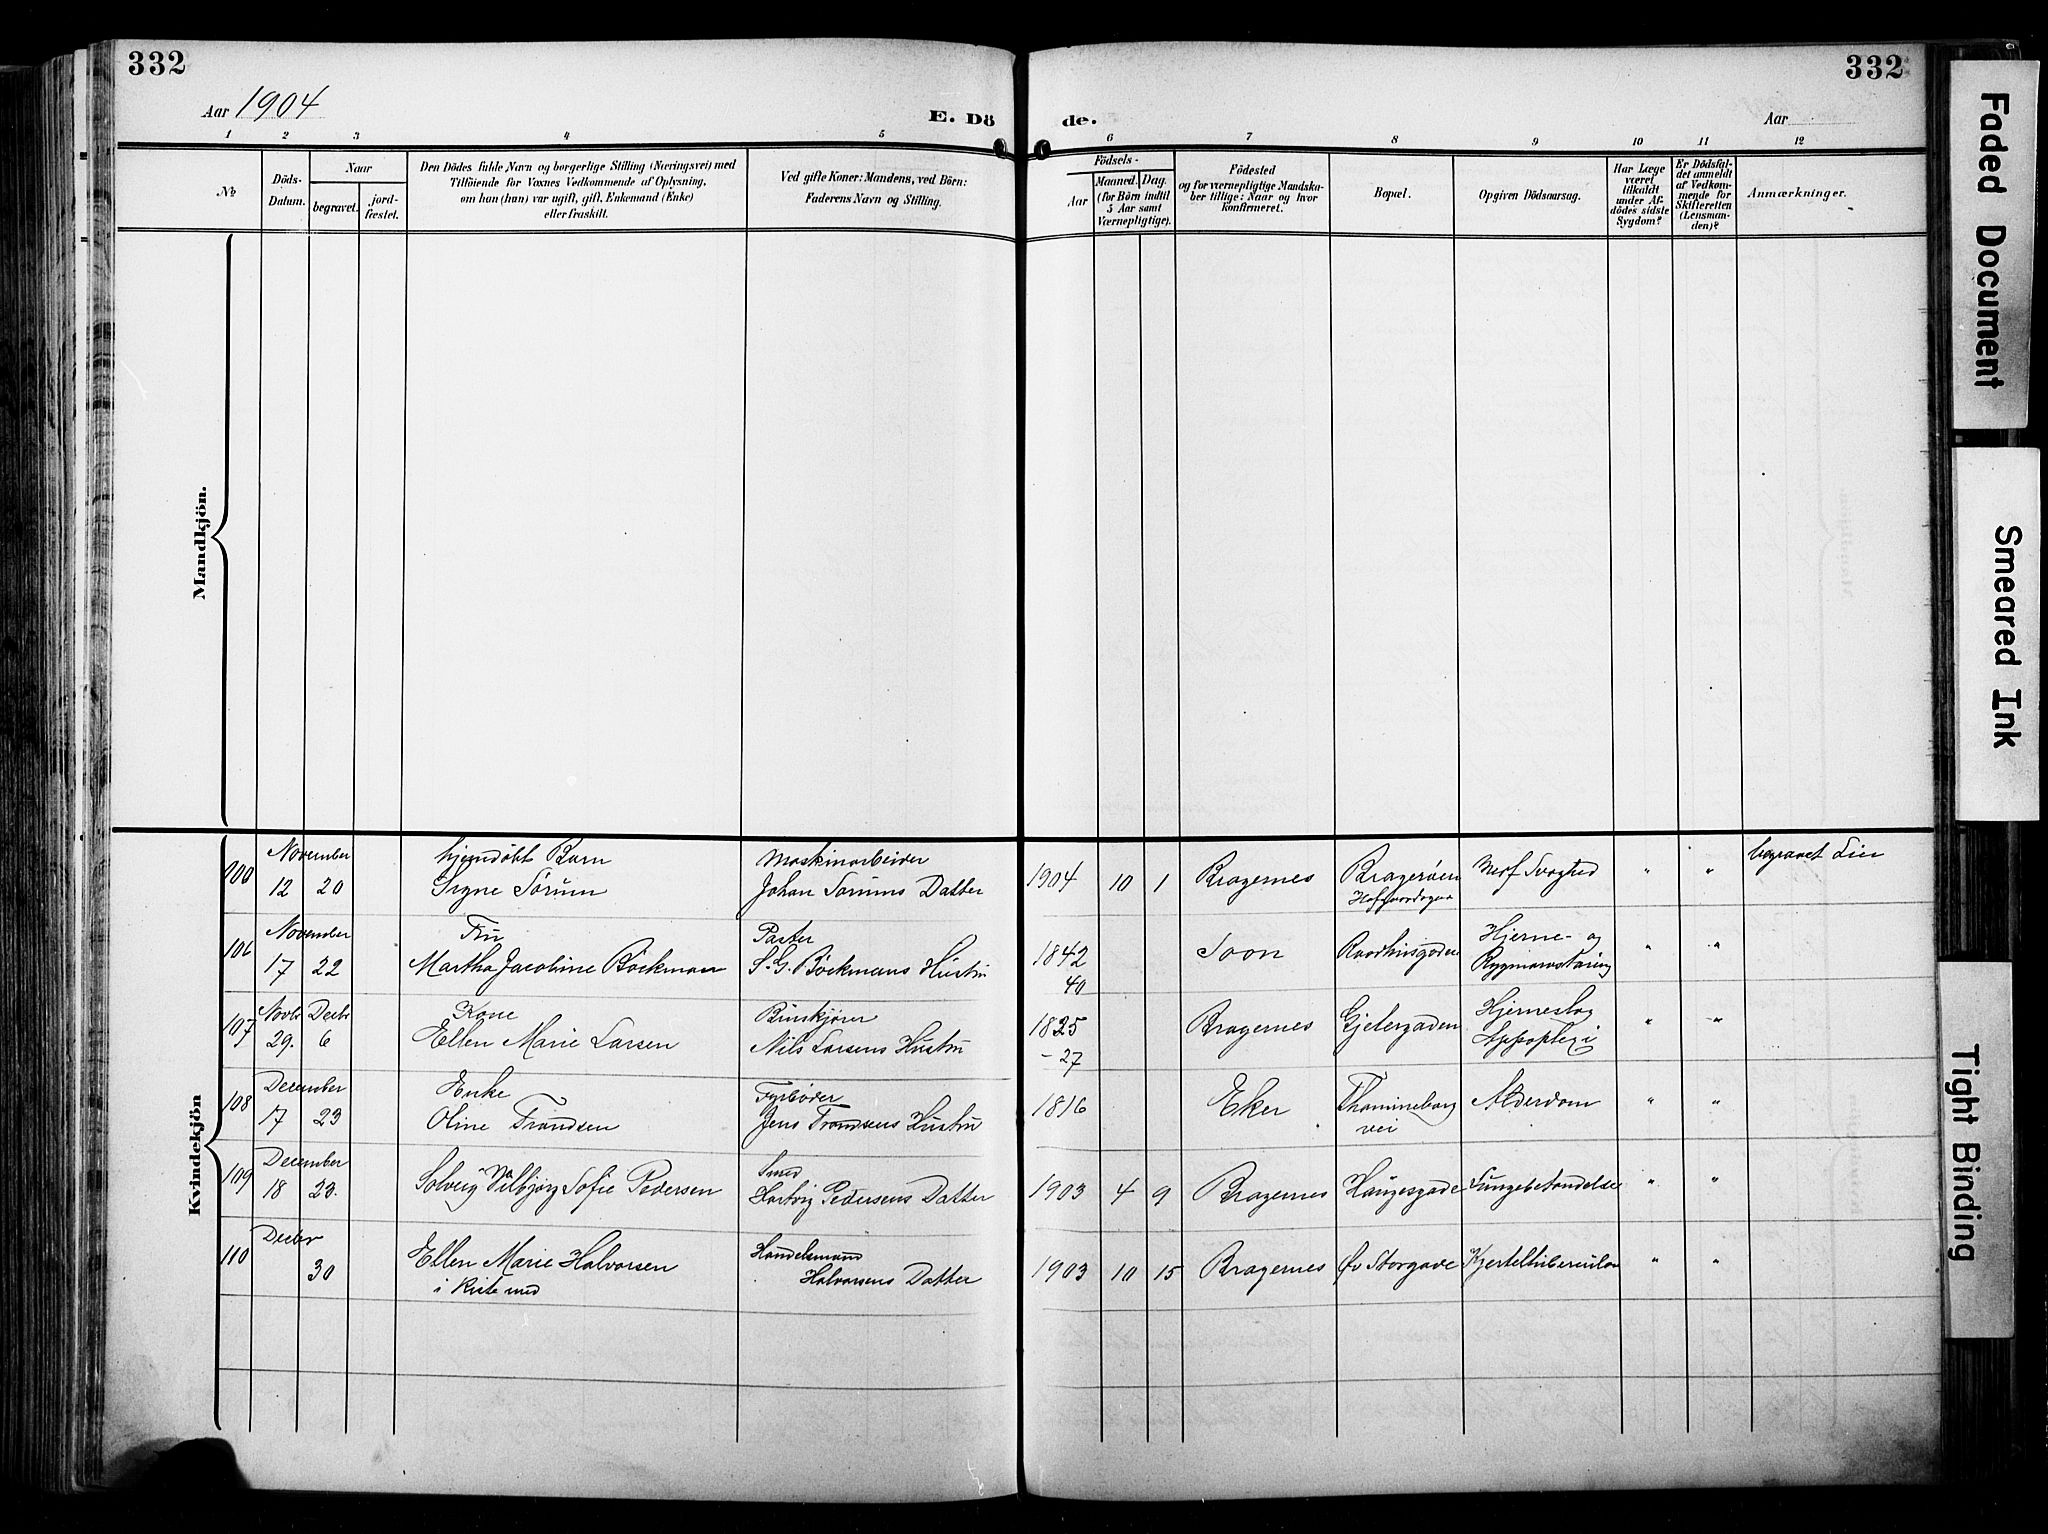 332
332
Aar 1904
E. Dö
de.
Aar
1 2 3 4 5 6 7 8 9 10 11 12
No
Döds-
Datum.
Naar
begravet.
jord-
fæstet.
Den Dödes fulde Navn og borgerlige Stilling (Næringsvei) med
Tilföiende for Voxnes Vedkommende af Oplysning,
om han (hun) var ugift, gift, Enkemand (Enke)
eller fraskilt.
Ved gifte Koner: Mandens, ved Börn:
Faderens Navn og Stilling.
Födsels-
Aar
Maaned.
Dag.
(for Börn indtil
5 Aar samt
Værnepligtige).
Födested
og for værnepligtige Mandska-
ber tillige: Naar og hvor
konfirmeret.
Bopæl.
Opgiven Dödsaarsag.
Har Læge
været
tilkaldt
under Af-
dödes sidste
Sygdom?
Er Dödsfal-
det anmeldt
af Vedkom-
mende for
Skifteretten
(Lensman-
den)?
Anmærkninger.
Mandkjön.
Kvindekjön
November hjemdöbt Barn Maskinarbeider begravet Lier
12 20 Signe Sörum Johan Sörums Datter 1904 10 1 Bragernes Bragerøen Svaghed " "
November Fru Pastor Hjerne- og
106 17 22 Martha Jacobine Böckman S. G. Böckmans Hustru 1842 Soon Raadhusgaden " "
40
Novbr Decbr Kone Hjerneslag
107 29. 6 Ellen Marie Larsen Nils Larsens Hustru 1825 Bragernes Gjetergaden Apoplexi " "
- 27
December Enke Fyrböder
108 17 23 Oline Trondsen Jens Trondsens Hustru 1816 Eker Thamineborg Alderdom " "
vei
December Smed
109 18 23. Solveig Valbjörg Sofie Pedersen Hartvig Pedersens Datter 1903 4 9 Bragernes Haugesgade Lungebetændelse " "
Decbr Handelsmand
110 30 Ellen Marie Halvorsen Halvorsens Datter 1903 10 15 Bragernes Øv Storgade " "
i Kiste med
Faded Document
Smeared Ink
Tight Binding